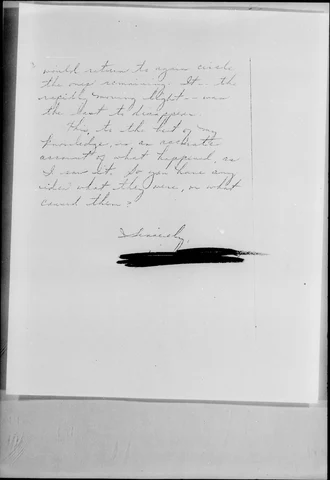 would return to again circle
the one remaining. It - the
rapidly moving light - was
the last to disappear.
This, to the best of my
knowledge, is an accurate
account of what happened, as
I saw it. Do you have any
idea what they were, or what
caused them?
Sincerely,